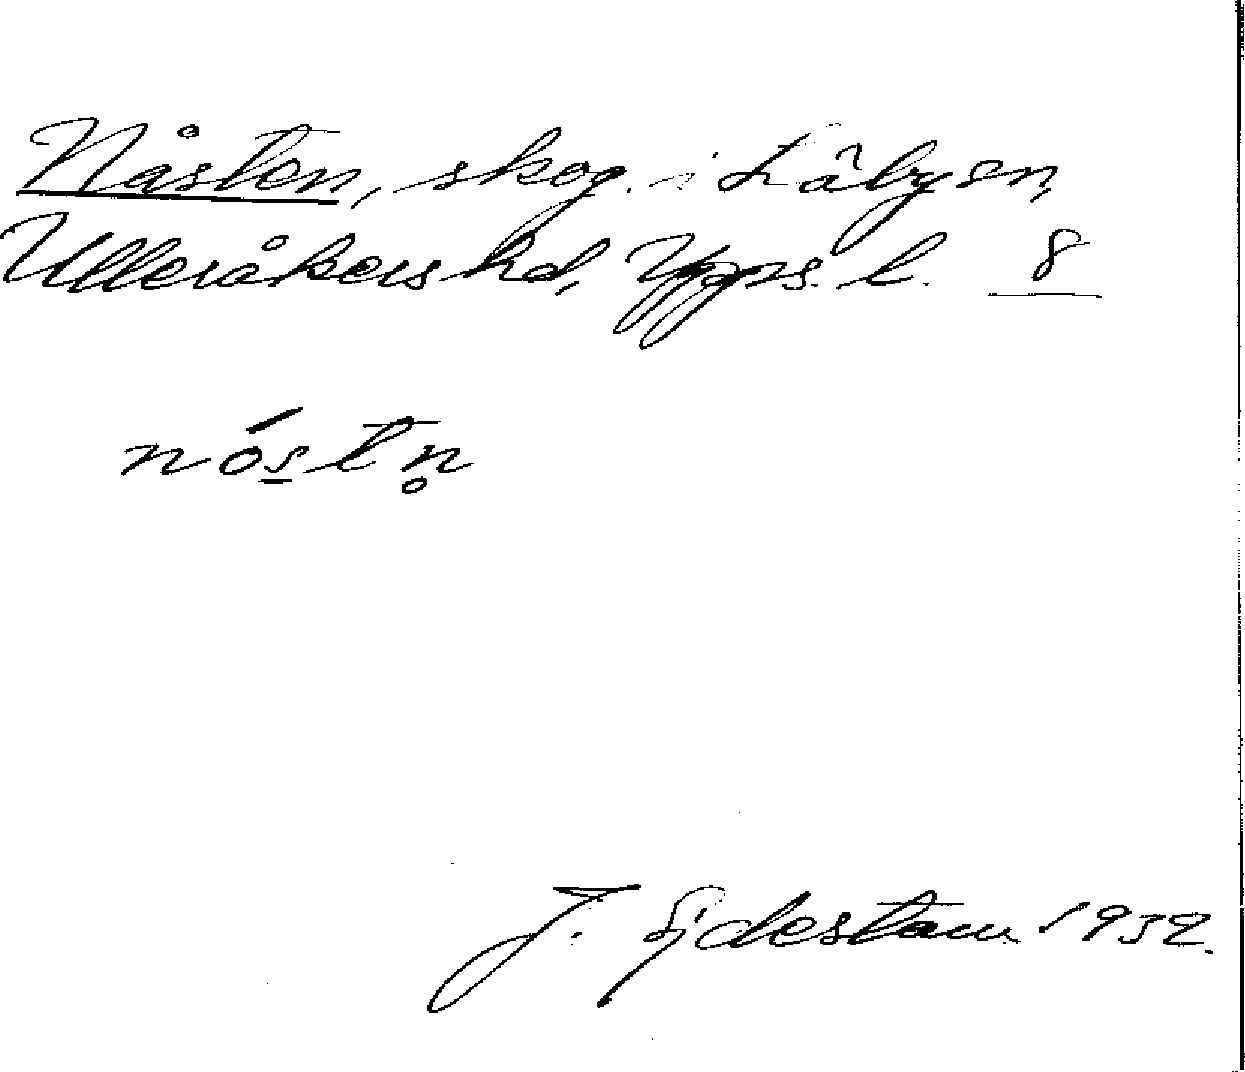 Nåsten, skog i Läby sn,
Ulleråkers hd, Upps. l. 8
nós̲tn̥
J. Sjdestam 1932.